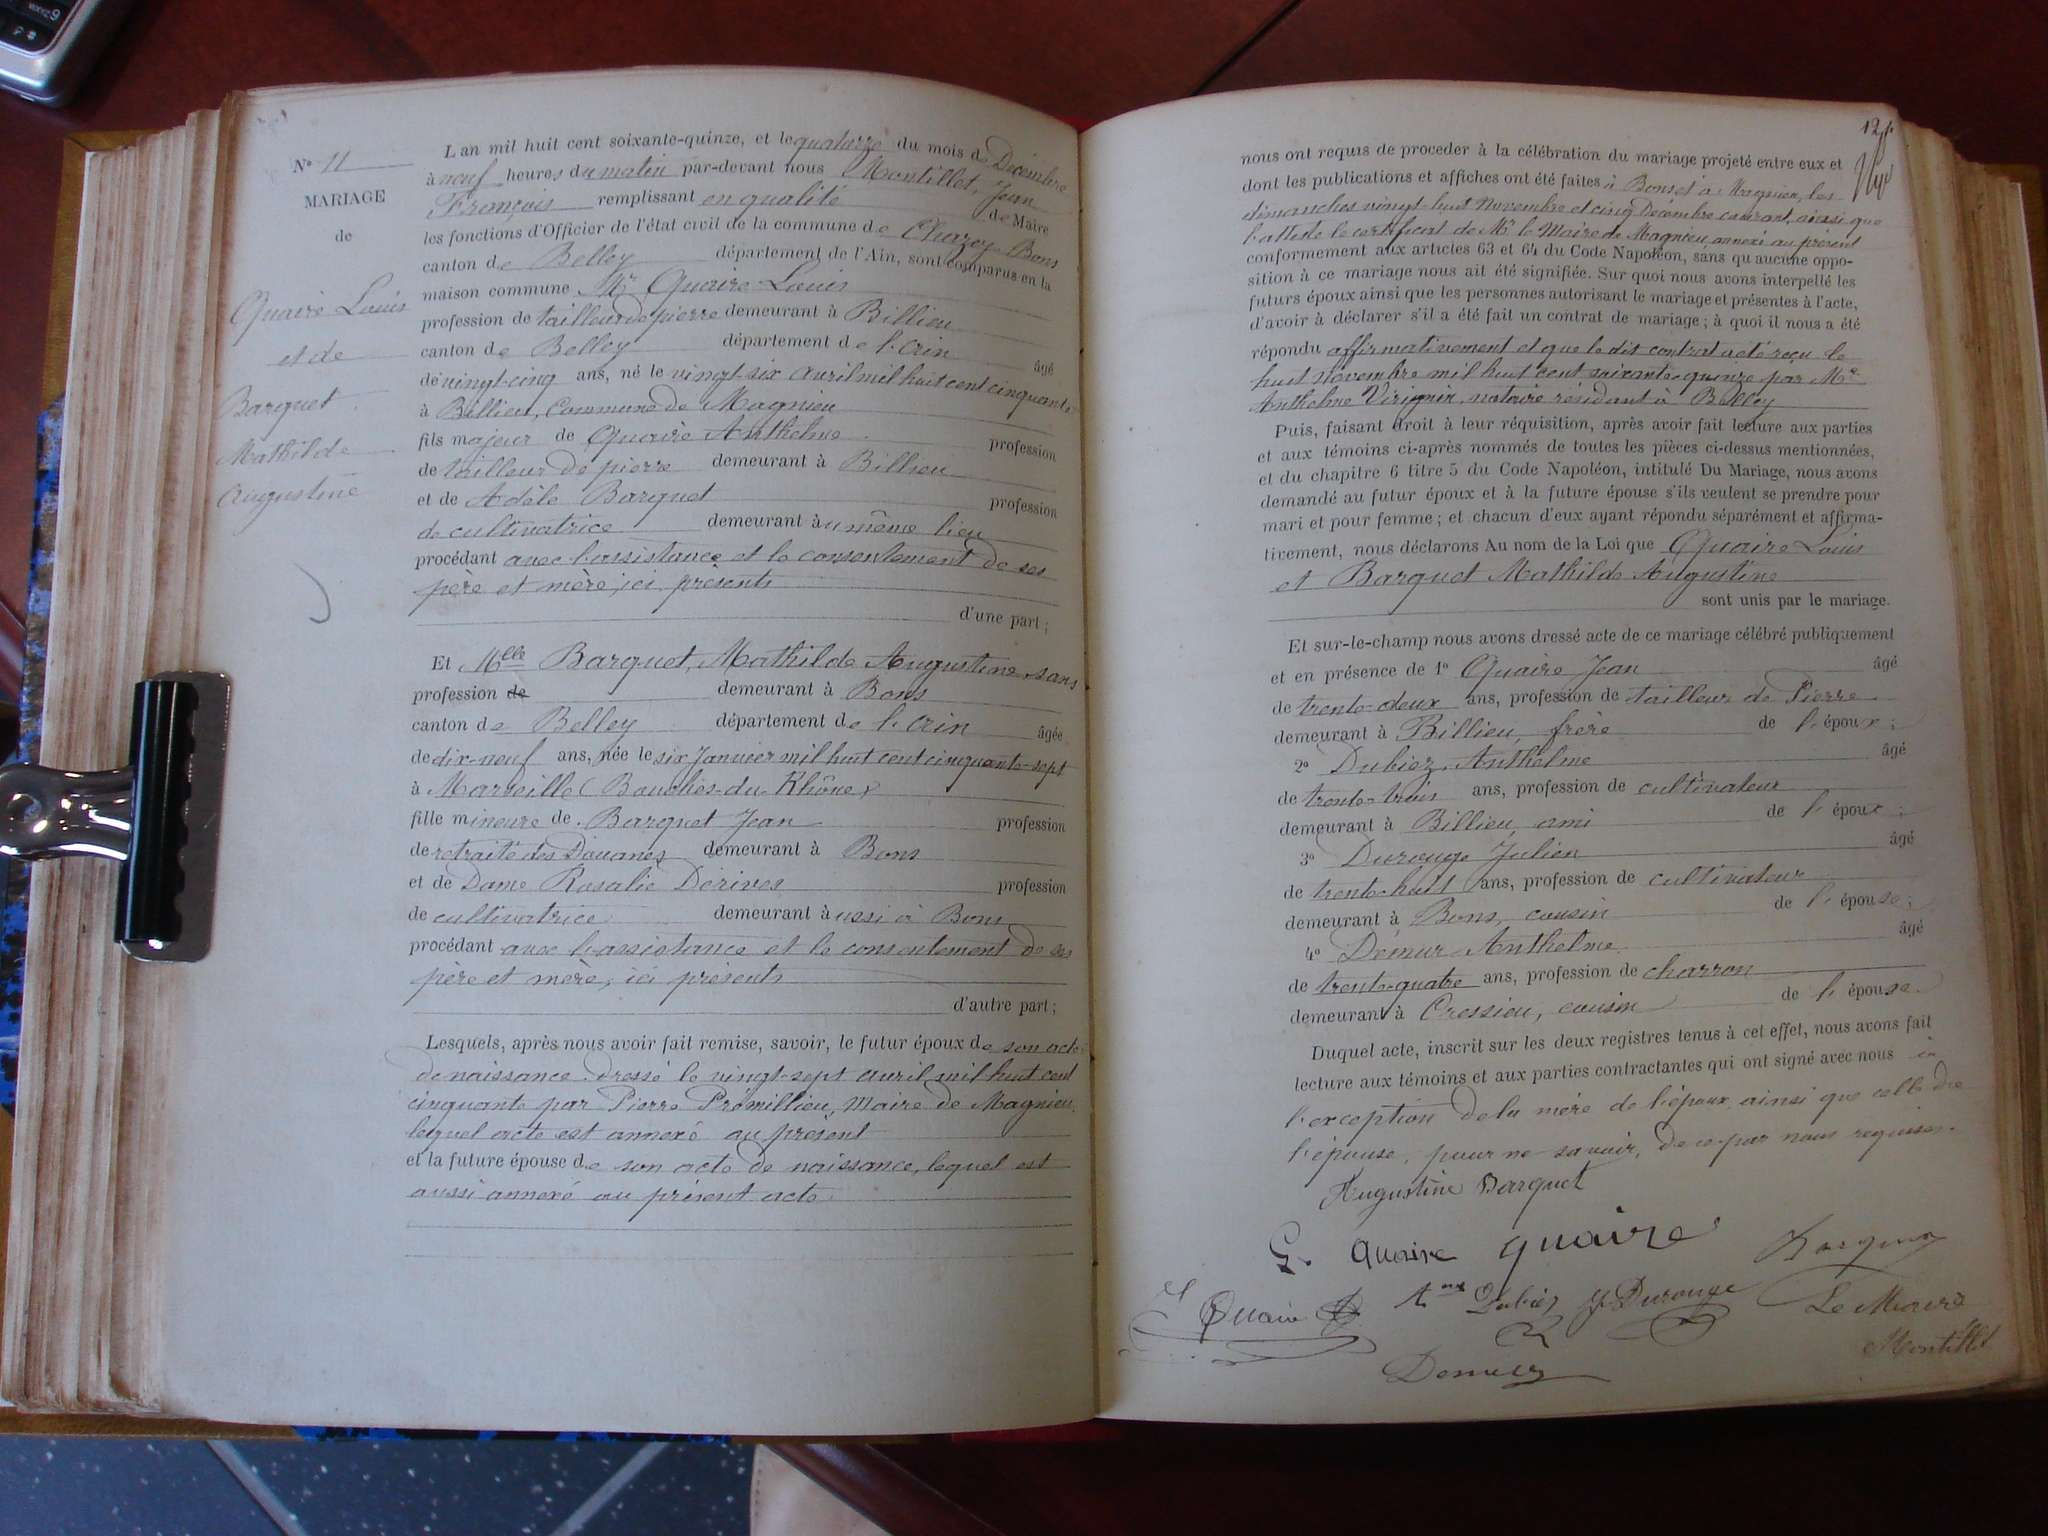 N° 11
MARIAGE
de
Quaire Louis
et de
Barquet
Mathilde
Augustine
L'an mil huit cent soixante-quinze, et le quatorze du mois de Décembre
à neuf heures du matin par-devant nous Montillet, Jean
François remplissant en qualité de Maire
les fonctions d'Officier de l'état civil de la commune de Chazey-Bons
canton de Belley département de l'Ain, sont comparus en la
maison commune Mr Quaire Louis
profession de tailleur de pierre demeurant à Billieu
canton de Belley département de l'Ain âgé
de vingt-cinq ans, né le vingt-six avril mil huit cent cinquante
à Billieu, Commune de Magnieu
fils majeur de Quaire Anthelme profession
de tailleur de pierre demeurant à Billieu
et de Adèle Barquet profession
de cultivatrice demeurant au même lieu
procédant avec l'assistance et le consentement de ses
père et mère, ici présents
d'une part ;
Et Mlle Barquet, Mathilde Augustine, sans
profession de demeurant à Bons
canton de Belley département de l'Ain âgée
de dix-neuf ans, née le six Janvier mil huit cent cinquante-sept
à Marseille (Bouches-du-Rhône)
fille mineure de Barquet Jean profession
de retraité des Douanes demeurant à Bons
et de Dame Rosalie Dérives profession
de cultivatrice demeurant aussi à Bons
procédant avec l'assistance et le consentement de ses
père et mère, ici présents
d'autre part ;
Lesquels, après nous avoir fait remise, savoir, le futur époux de son acte
de naissance dressé le vingt-sept avril mil huit cent
cinquante par Pierre Prémillieu, Maire de Magnieu,
lequel acte est annexé au présent
et la future épouse de son acte de naissance, lequel est
aussi annexé au présent acte.
12
nous ont requis de proceder à la célébration du mariage projeté entre eux et
dont les publications et affiches ont été faites à Bons et à Magnieu, les
dimanches vingt-huit Novembre et cinq Décembre courant, ainsi que
l'atteste le certificat de Mr le Maire de Magnieu, annexé au présent
conformement aux articles 63 et 64 du Code Napoléon, sans qu'aucune oppo-
sition à ce mariage nous ait été signifiée. Sur quoi nous avons interpellé les
futurs époux ainsi que les personnes autorisant le mariage et présentes à l'acte,
d'avoir à déclarer s'il a été fait un contrat de mariage ; à quoi il nous a été
répondu affirmativement et que le dit contrat a été reçu le
huit Novembre mil huit cent soixante-quinze par Me
Anthelme notaire résidant à Belley
Puis, faisant droit à leur réquisition, après avoir fait lecture aux parties
et aux témoins ci-après nommés de toutes les pièces ci-dessus mentionnées,
et du chapitre 6 titre 5 du Code Napoléon, intitulé Du Mariage, nous avons
demandé au futur époux et à la future épouse s'ils veulent se prendre pour
mari et pour femme ; et chacun d'eux ayant répondu séparément et affirma-
tivement, nous déclarons Au nom de la Loi que Quaire Louis
et Barquet Mathilde Augustine
sont unis par le mariage.
Et sur-le-champ nous avons dressé acte de ce mariage célébré publiquement
et en présence de 1° Quaire Jean âgé
de trente-deux ans, profession de tailleur de Pierre
demeurant à Billieu, frère de l'époux ;
2° Dubiez Anthelme âgé
de trente-trois ans, profession de cultivateur
demeurant à Billieu, ami de l'époux ;
3° Durouge Julien âgé
de trente-huit ans, profession de cultivateur
demeurant à Bons, cousin de l'épouse ;
4° Démur Anthelme âgé
de trente-quatre ans, profession de charron
demeurant à Cressieu, cousin de l'épouse.
Duquel acte, inscrit sur les deux registres tenus à cet effet, nous avons fait
lecture aux témoins et aux parties contractantes qui ont signé avec nous à
l'exception de la mère de l'époux, ainsi que celle de
l'épouse, pour ne savoir, de ce par nous requises.
Augustine Barquet
Quaire quaire
Quaire Dubiez J Durouge Le Maire
Montillet
Demur